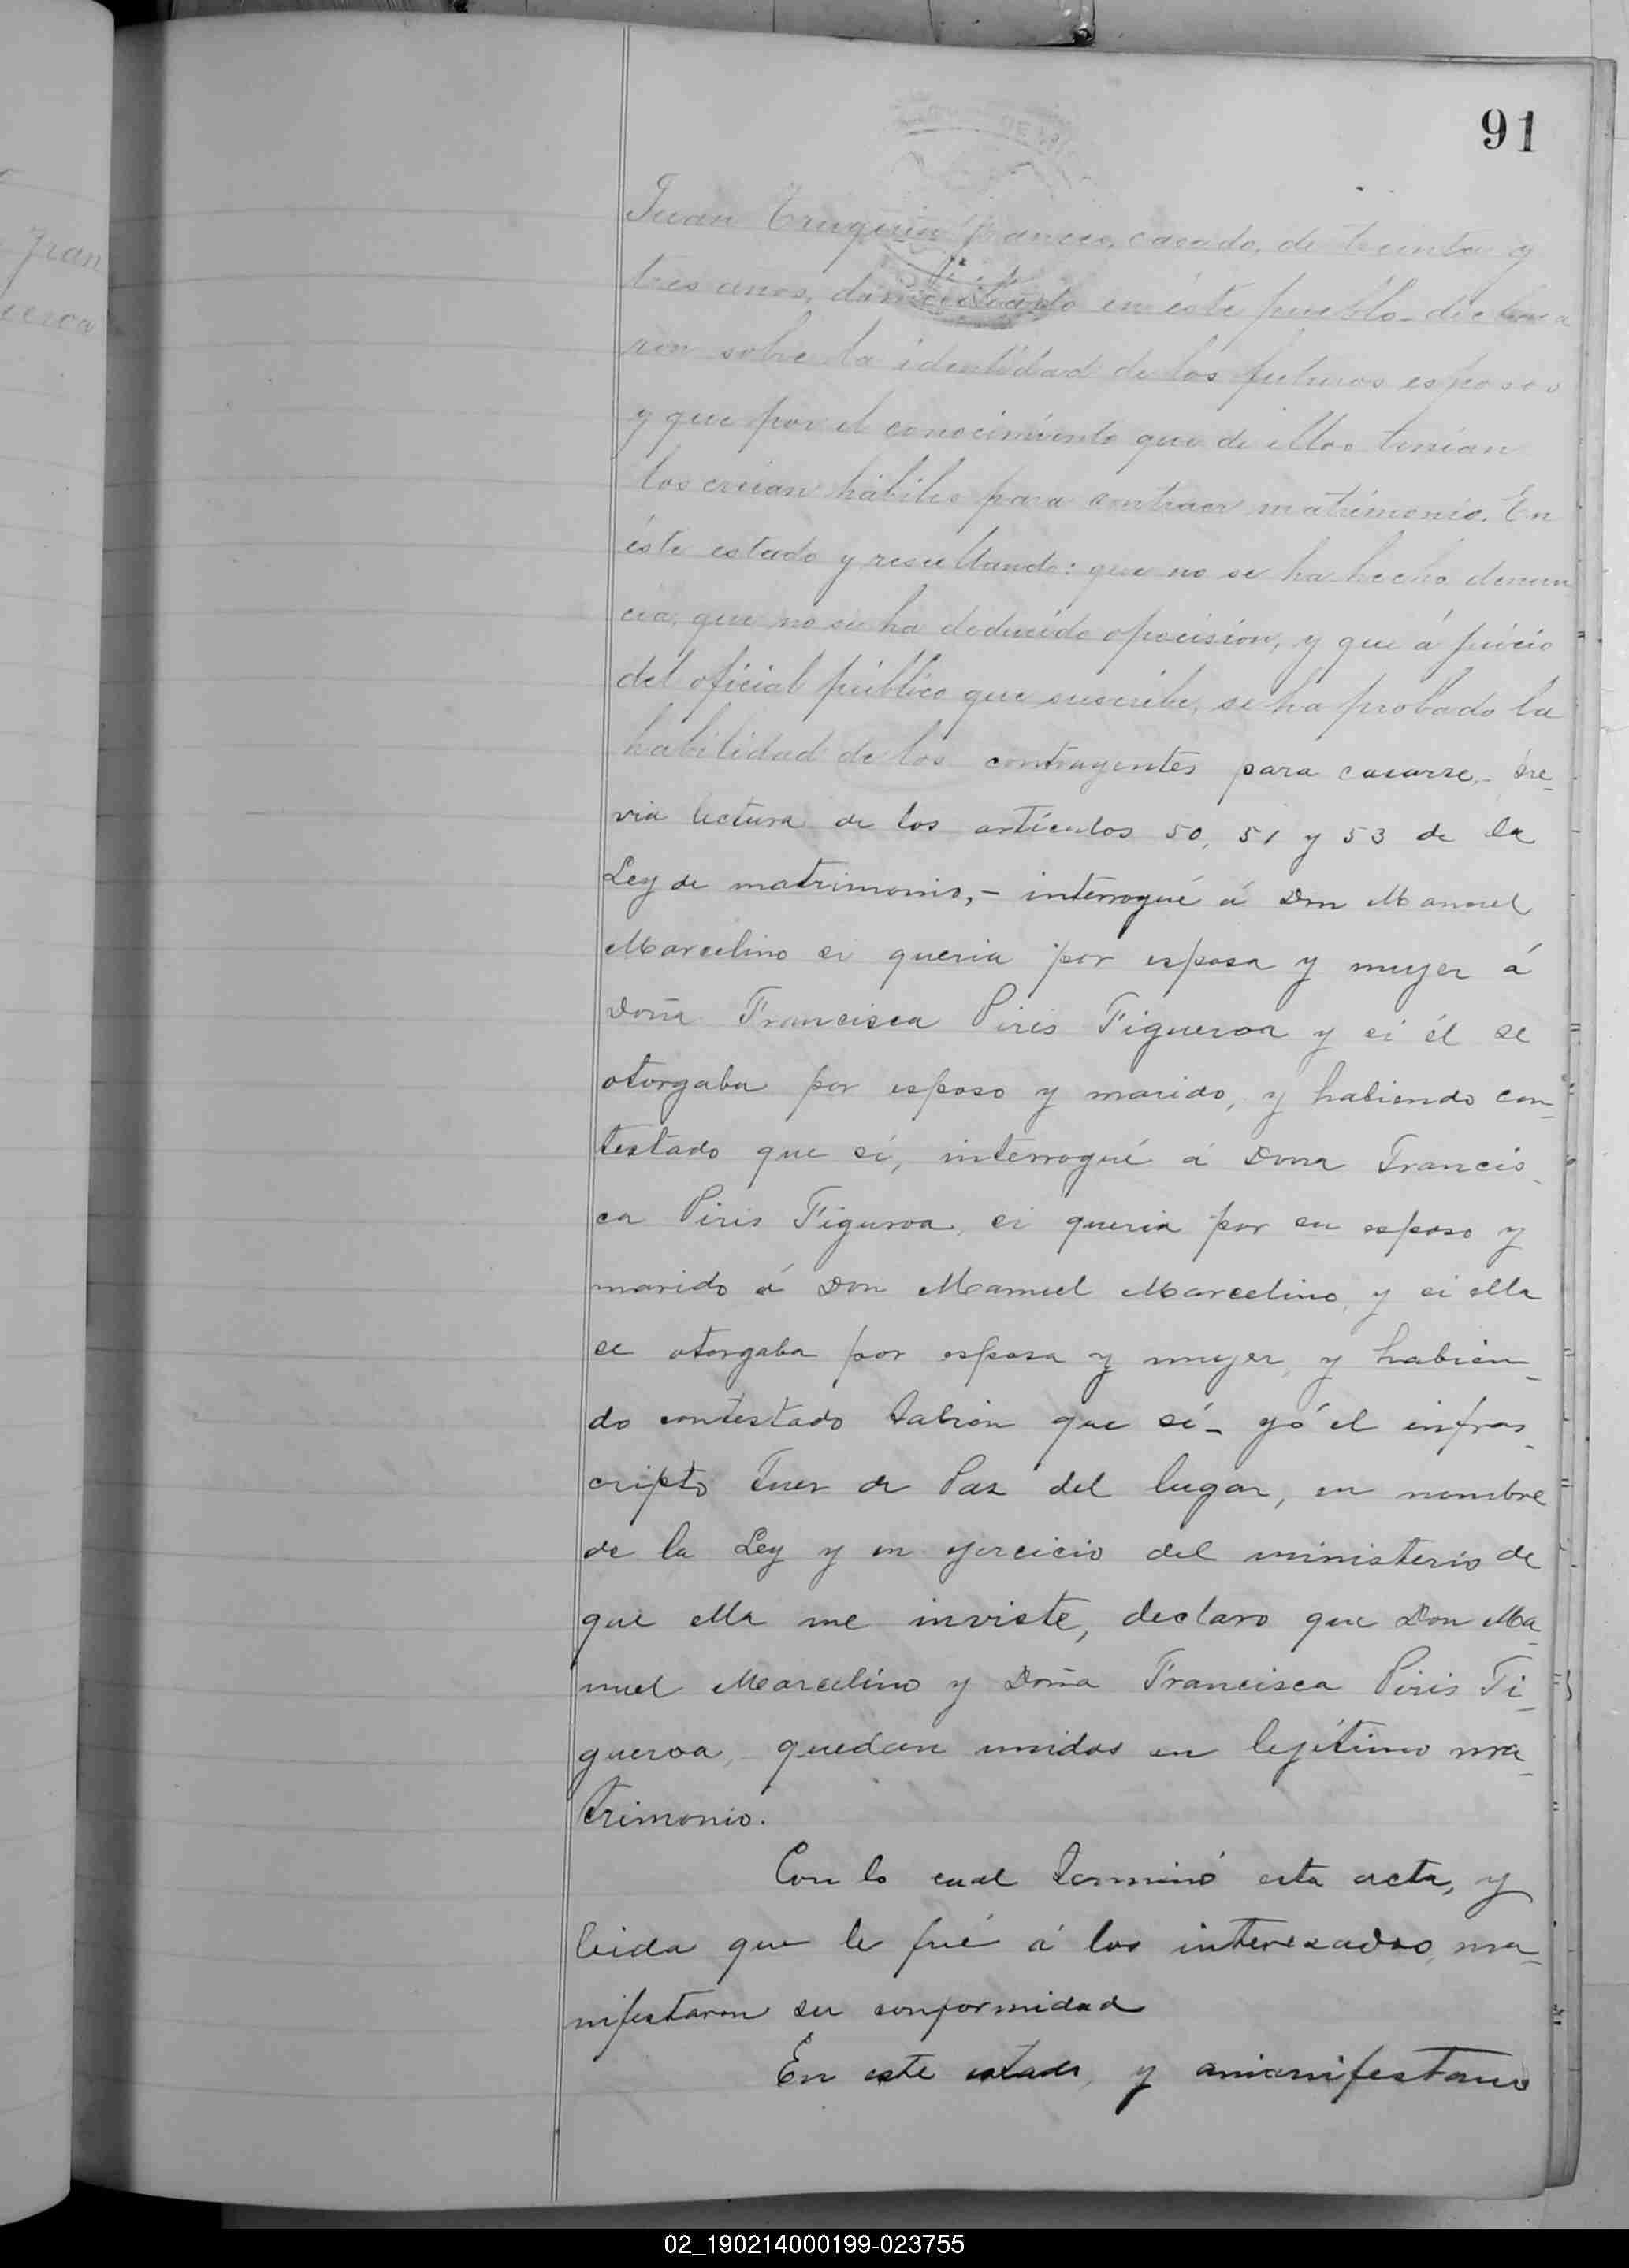 91
Juan Truquin frances, casado, de treinta y
tres años, domiciliado en éste pueblo - declara
ron sobre la identidad de los futuros esposos
y que por el conocimiento que de ellos tenian
los creian hábiles para contraer matrimonio. En
éste estado y resultando: que no se ha hecho denun
cia, que no se ha deducido oposición, y que á juicio
del oficial público que suscribe, se ha probado la
habilidad de los contrayentes para casarse,- pre-
via lectura de los artículos 50, 51 y 53 de la
Ley de matrimonio,- interrogué á Don Manuel
Marcelino si queria por esposa y mujer á
Doña Francisca Piris Figueroa y si él se
otorgaba por esposo y marido, y habiendo con-
testado que sí, interrogué á Doña Francis-
ca Piris Figueroa, si queria por su esposo y
marido á Don Manuel Marcelino, y si ella
se otorgaba por esposa y mujer, y habien-
do contestado tabien que sí - yó el infras-
cripto Juez de Paz del lugar, en nombre
de la Ley y en ejercicio del ministerio de
que ella me inviste, declaro que Don Ma-
nuel Marcelino y Doña Francisca Piris Fi-
gueroa, quedan unidos en lejítimo ma-
trimonio.
Con lo cual terminó esta acta, y
leida que le fué á los interesados, ma-
nifestaron su conformidad
En este estado, y
Fran
02_190214000199-023755